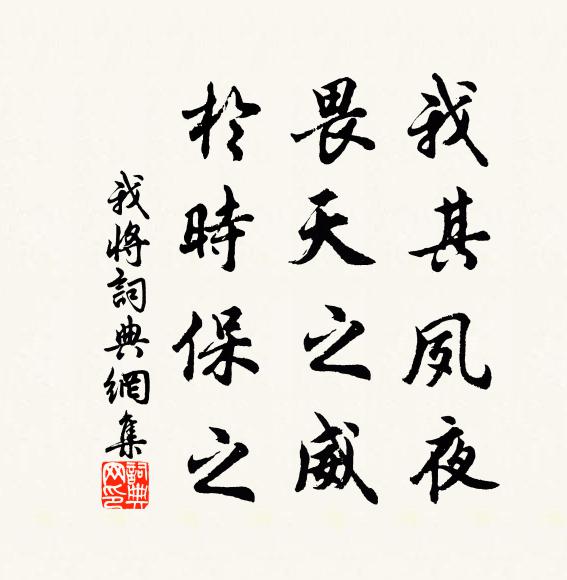 我其夙夜
畏天之威
於時保之
我將詞典網集
詞典网印